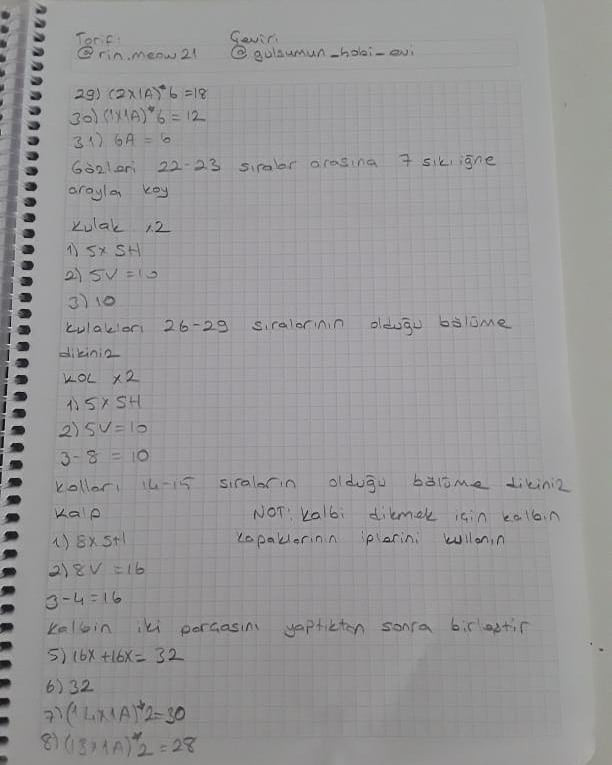 Tarif: Çeviri:
@rin.meow21 @gulsumun_hobi_evi
29) (2x1A)*6=18
30) (1x1A)*6=12
31) 6A=6
Gözleri 22-23 sıralar arasına 7 sık iğne
arayla koy
Kulak x2
1) 5x SH
2) 5V=10
3) 10
Kulakları 26-29 sıralarının olduğu bölüme
dikiniz
KOL x2
1) 5x SH
2) 5V=10
3-8=10
Kolları 14-15 sıraların olduğu bölüme dikiniz
Kalp NOT: Kalbi dikmek için kalbin
1) 8x SH kapaklarının iplerini kullanın
2) 8V=16
3-4=16
Kalbin iki parçasını yaptıkten sonra birleştir
5) 16x+16x=32
6) 32
7) (14x1A)*2=30
8) (13x1A)*2=28